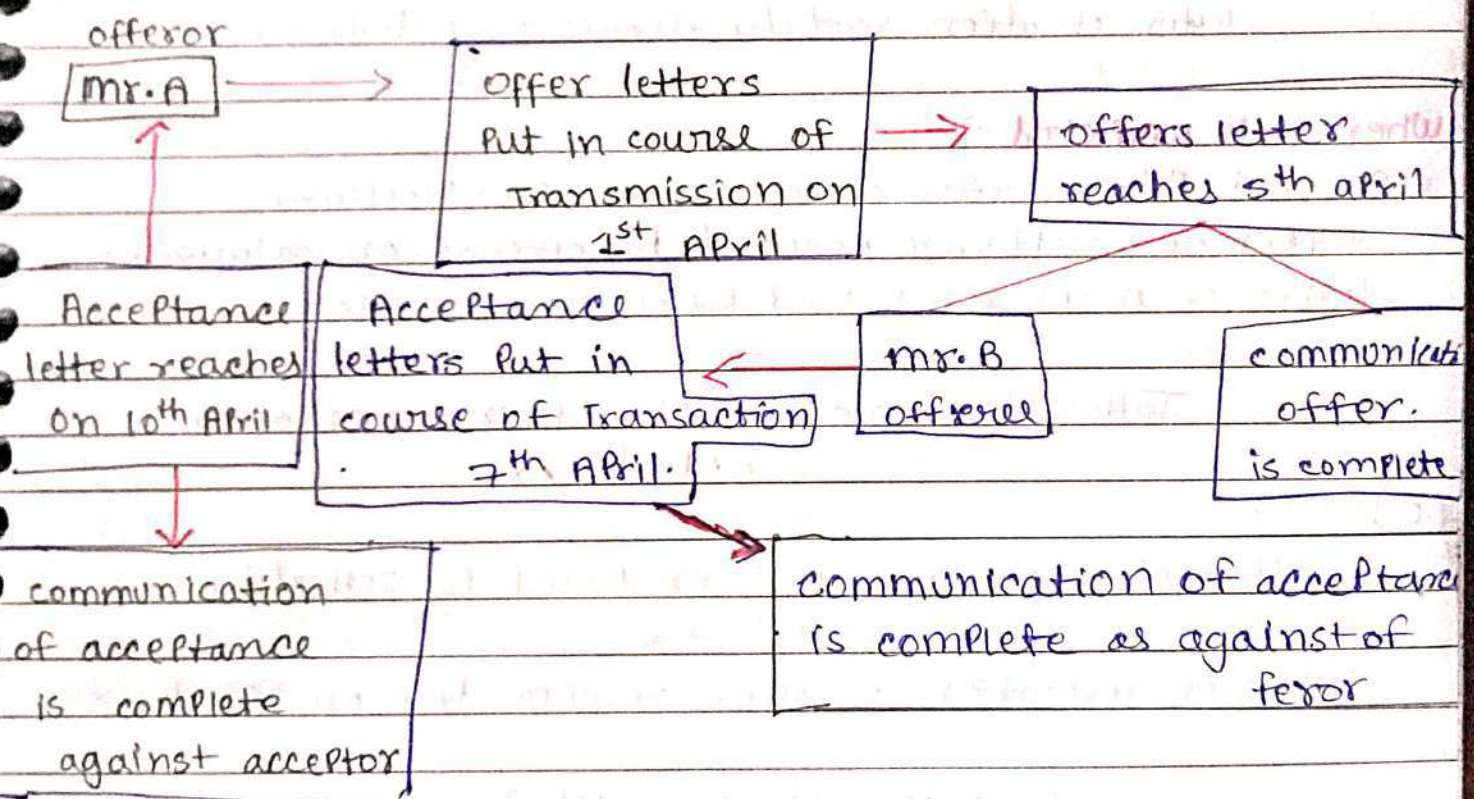 offeror
mr. A
offer letters
Put in course of
Transmission on
1st April
offers letter
reaches 5th april
Acceptance
letter reaches
on 10th April
Acceptance
letters Put in
course of Transaction
7th April.
mr. B
offeree
communicati
offer.
is complete
communication
of acceptance
is complete
against acceptor
communication of acceptance
is complete as against of
feror